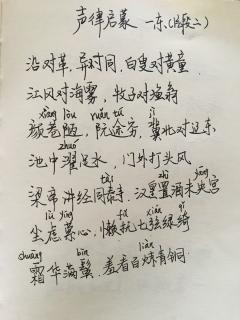 声律启蒙 一东(片段二)
沿对革,异对同,白叟对黄童
江风对海雾,牧子对渔翁
xiàng lòu ruǎn tú jì
颜巷陋,阮途穷,冀北对辽东
zhuó
池中濯足水,门外打头风
tài zhì yāng
梁帝讲经同泰寺,汉皇置酒未央宫
lǜ yǐng fǔ xián qǐ
尘虑萦心,懒抚七弦绿绮
shuāng bìn liàn
霜华满鬓,羞看百炼青铜